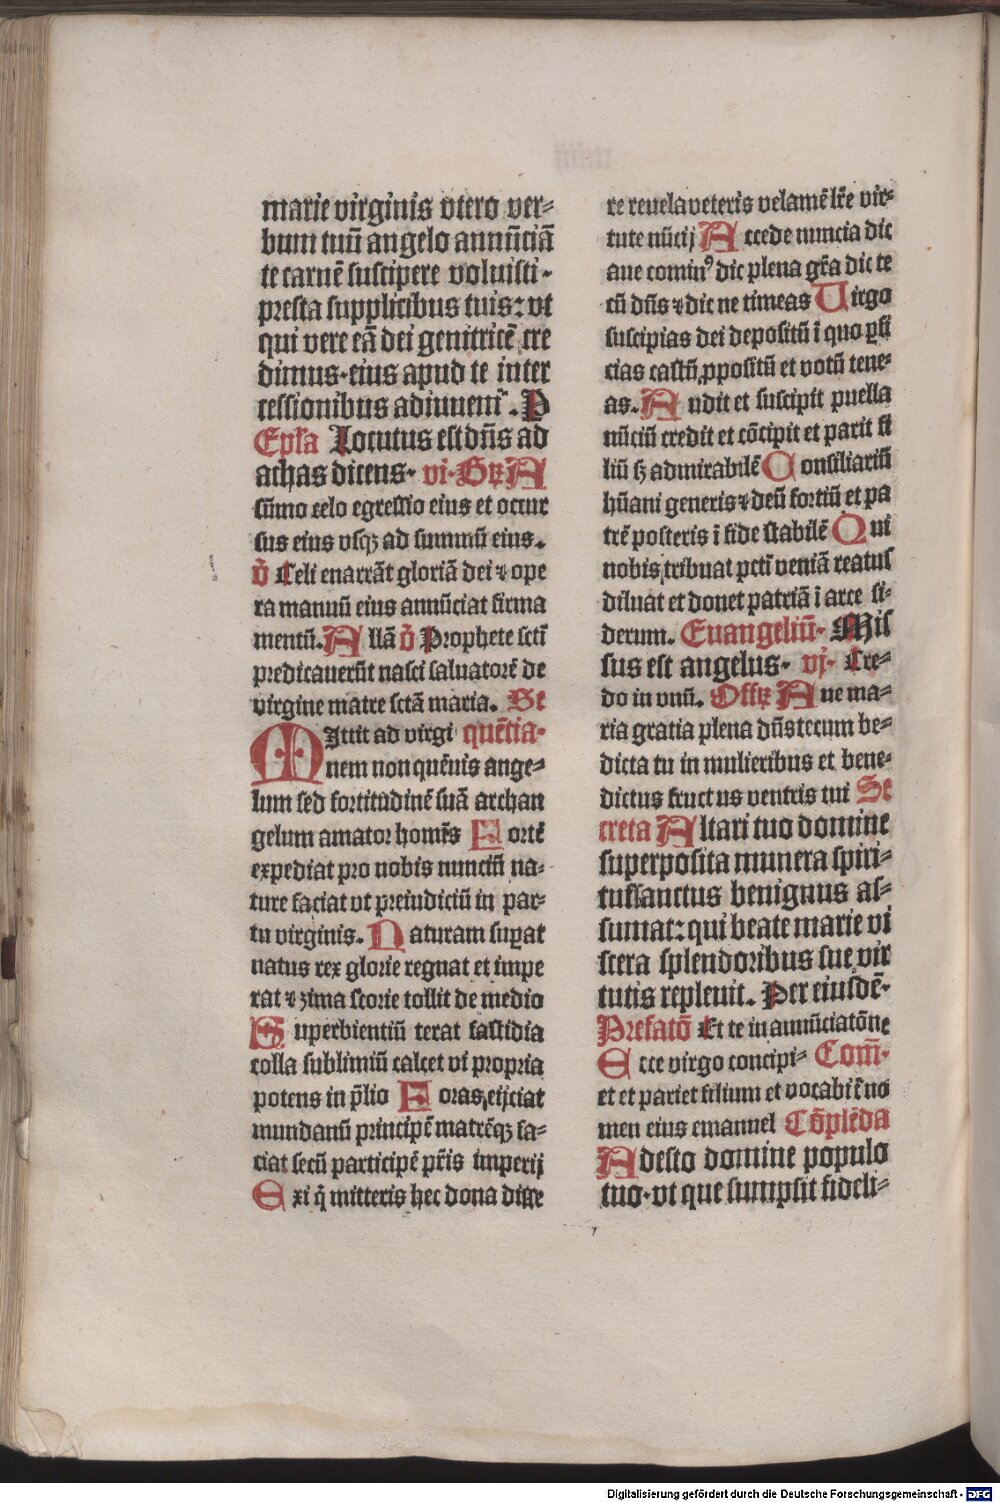 marie virginis vtero ver⸗
bum tuū angelo annūciā
te carnē suscipere voluisti·
presta supplicibus tuis: vt
qui vere eā dei genitricē cre
dimus·eius apud te inter
cessionibus adiuuem̄. P
Ep̄la Locutus est dn̄s ad
achas dicens· vi· Gꝛꝫ A
sūmo celo egressio eius et occur
sus eius vsqꝫ ad summū eius.
v̄ Celi enarrāt gloriā dei ⁊ ope
ra manuū eius annūciat firma
mentū. A llā v̄ Prophete sctī
predicauerūt nasci saluatorē de
virgine matre sctā maria. Se
M Ittit ad virgi quētia·
nem non quēuis ange⸗
lum sed fortitudinē suā archan
gelum amator homīs F ortē
expediat pro nobis nunciū na⸗
ture faciat vt preiudiciū in par⸗
tu virginis. N aturam suꝑat
natus rex glorie regnat et impe
rat ⁊ zima scorie tollit de medio
S uperbientiū terat fastidia
colla sublimiū calcet vi propria
potens in p̄lio F oras eijciat
mundanū principē matrēqꝫ fa⸗
ciat secū participē pr̄is imperij
E xi q̄ mitteris hec dona disse
re reuela veteris velamē lr̄e vir⸗
tute nūcij A ccede nuncia dic
aue cominꝰ dic plena gr̄a dic te
cū dn̄s ⁊ dic ne timeas V irgo
suscipias dei depositū ī quo ꝑfi
cias castū ꝓpositū et votū tene⸗
as. A udit et suscipit puella
nūciū credit et cōcipit et parit fi
liū sꝫ admirabilē C onsiliariū
hūani generis ⁊ deū fortiū et pa
trē posteris ī fide stabilē Q ui
nobis tribuat pctī veniā reatus
diluat et donet patriā ī arce si⸗
derum. Euangeliū· Mis
sus est angelus· vj· Cre⸗
do in vnū. Offꝫ A ue ma⸗
ria gratia plena dn̄s tecum be⸗
dicta tu in mulieribus et bene⸗
dictus fructus ventris tui Se
creta A ltari tuo domine
superposita munera spiri⸗
tussanctus benignus as⸗
sumat: qui beate marie vi
scera splendoribus sue vir
tutis repleuit. Per eiusdē·
Prefatō Et te in annūciatōne
E cce virgo concipi⸗ Com̄·
et et pariet filium et vocabit̄ no
men eius emanuel Cōplēda
A desto domine populo
tuo·vt que sumpsit fideli⸗
Digitalisierung gefördert durch die Deutsche Forschungsgemeinschaft - DFG